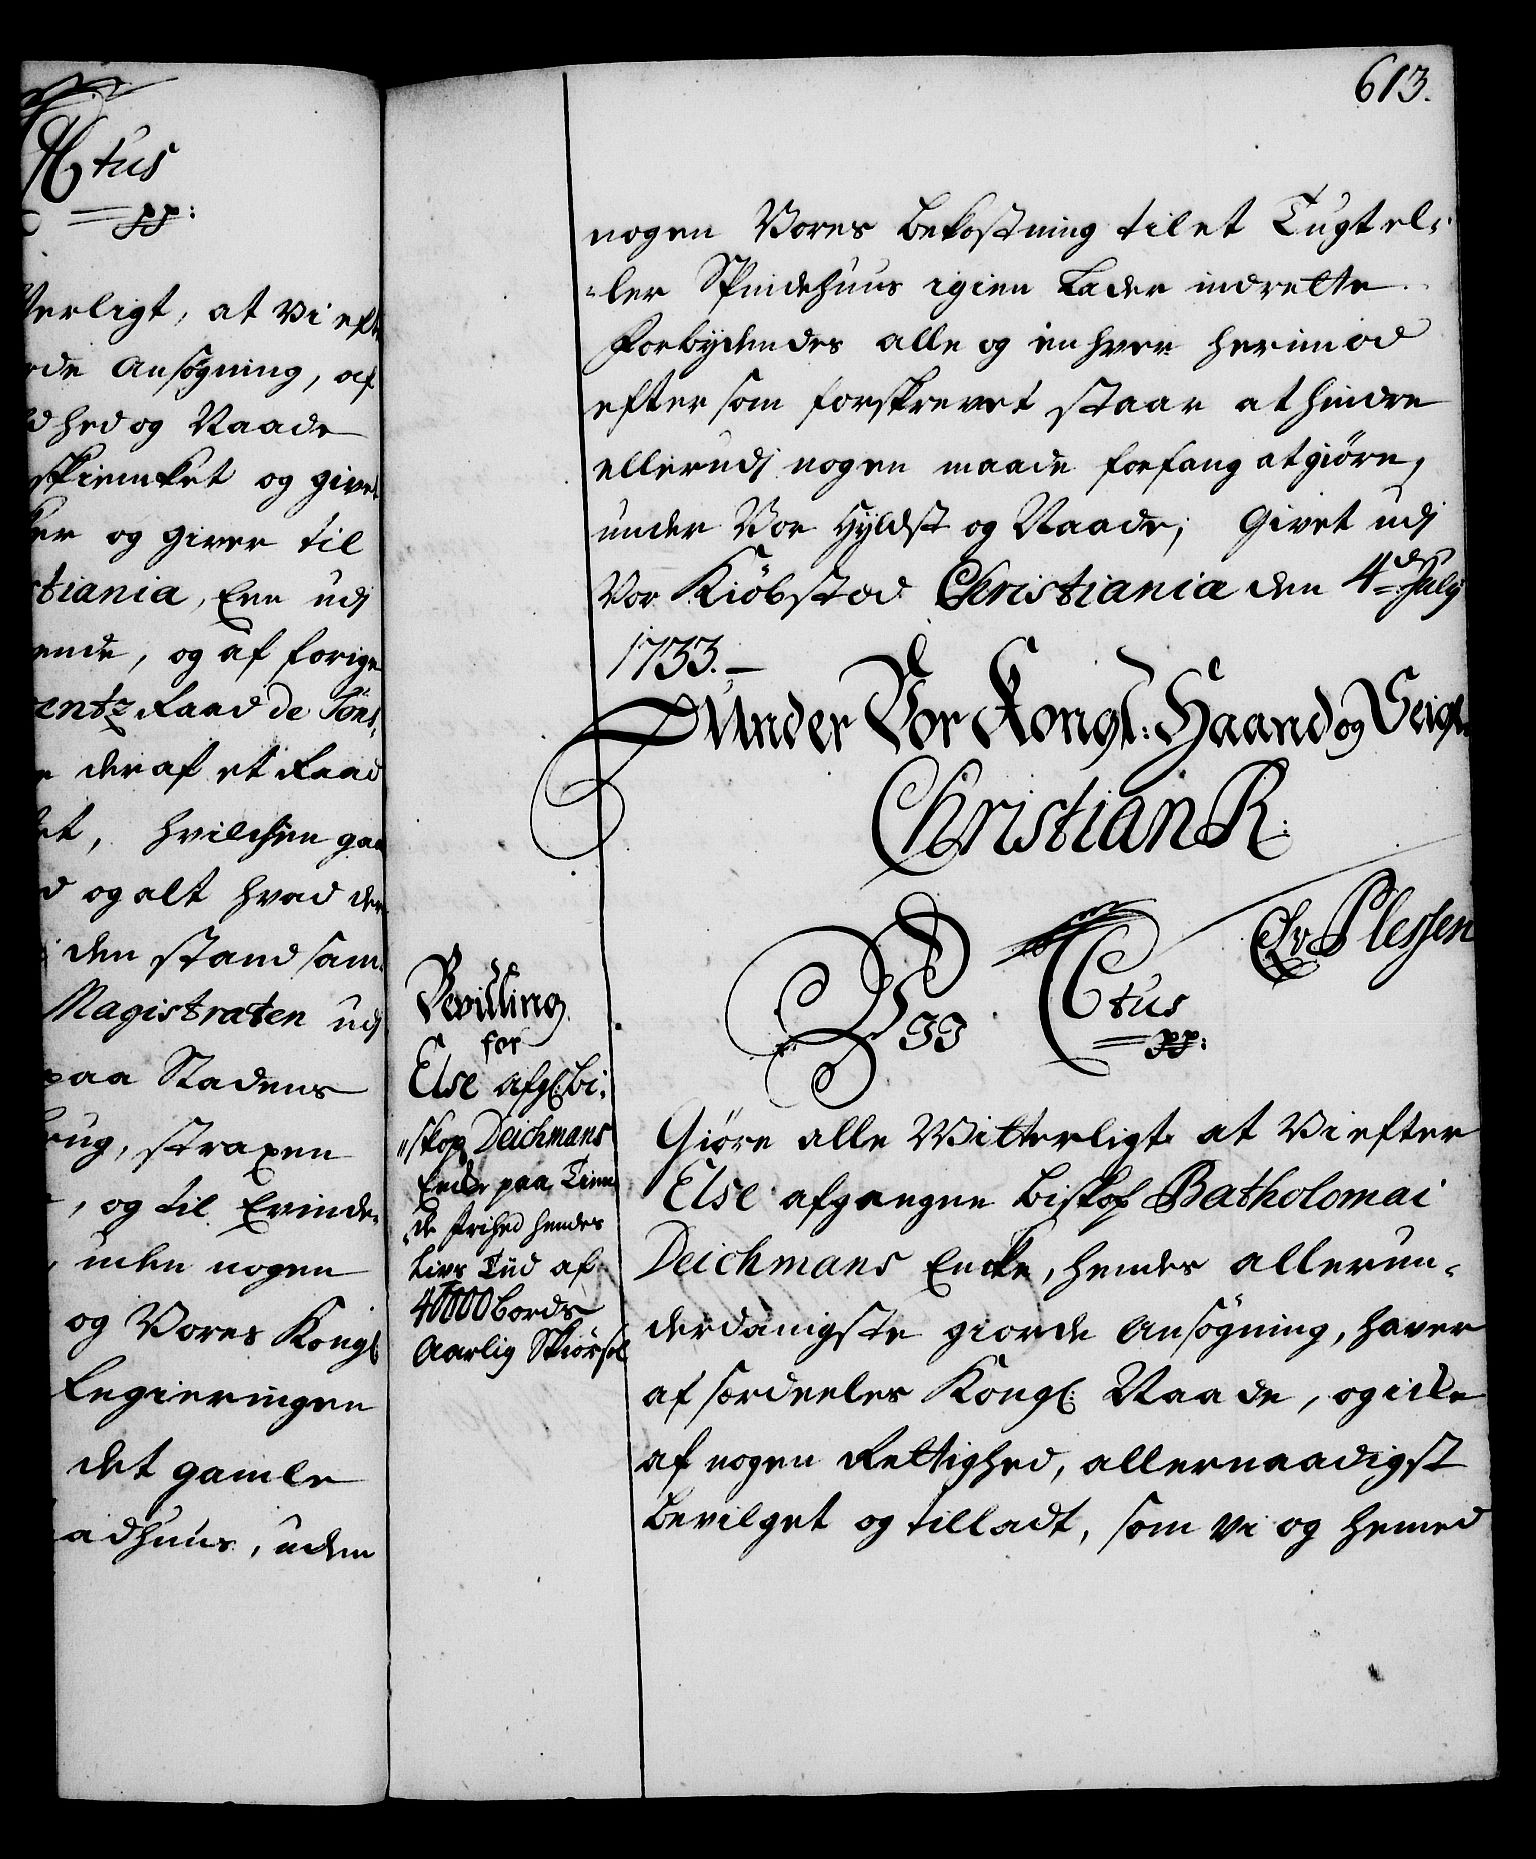 Ctus
pp:
terligt, at Vi eft
de Ansøgning, af
dhed og Naade
skiencket og givet
ker og giver til
stiania, Een udj
ende, og af forige
entz Raad de Töns,
deraf et Raad
et, hvilchen gaa
d og alt hvad der
den stand sam
Magistraten udj
paa Stadens
brug, straxen
, og til Evinde,
uden nogen
og Vores Kongl
Regieringen
det gamle
aadhuus, uden
613.
nogen Vores Bekostning til et Tugt el,
-ler Spindehuus igien Lader indrette.
Forbydendes alle og enhver herimod
efter som forskrevet staar at hindre
eller udj nogen maade forfang at giøre,
under Vor Hyldst og Naade; Givet udj
Vor Kiöbsted Christiania den 4de July
1733.
Under Vor Kongl: Haand og Seigl.
Christian R:
CAv Plessen
Bevilling
for
Else afg: Bi,
"skop Deichmans
Encke paa Tien
de frihed hendes
Livs Tiid af
40000 Bords
Aarlig Skiørsel
W JJ Ctus
pp:
Giöre alle Witterligt at Vi efter
Else afgangne Biskop Batholomai
Deichmans Encke, hendes allerun,
derdanigste giorde Ansögning, haver
af særdeeles Kongl: Naade, og icke
af nogen Rettighed, allernaadigst
Bevilget og tilladt, som Vi og hermed